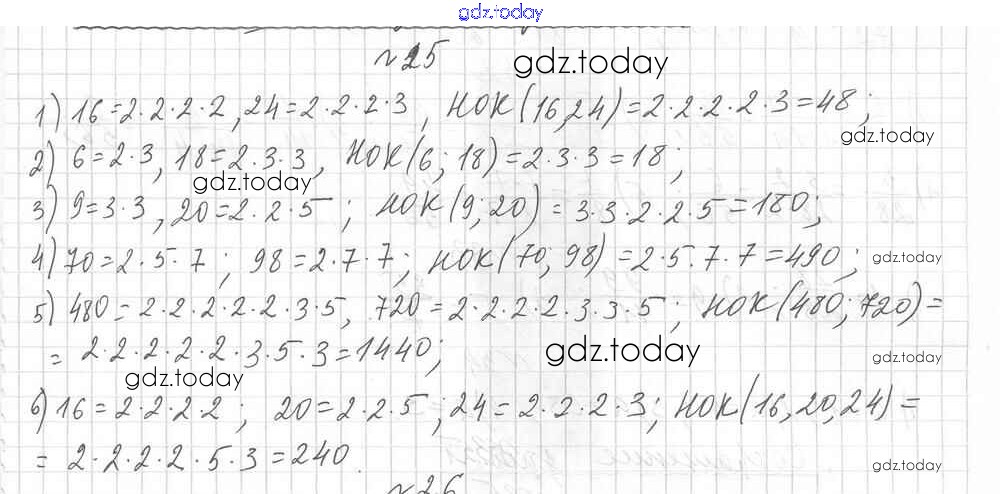 gdz.today
№25
gdz.today
1) 16=2·2·2·2, 24=2·2·2·3, НОК(16,24)=2·2·2·2·3=48;
gdz.today
2) 6=2·3, 18=2·3·3, НОК(6; 18)=2·3·3=18;
gdz.today
3) 9=3·3, 20=2·2·5; НОК(9; 20)=3·3·2·2·5=180;
4) 70=2·5·7; 98=2·7·7; НОК(70; 98)=2·5·7·7=490;
gdz.today
5) 480=2·2·2·2·2·3·5, 720=2·2·2·2·3·3·5; НОК(480; 720)=
=2·2·2·2·2·3·5·3=1440;
gdz.today
gdz.today
gdz.today
6) 16=2·2·2·2; 20=2·2·5; 24=2·2·2·3; НОК(16,20,24)=
=2·2·2·2·5·3=240.
gdz.today
№26